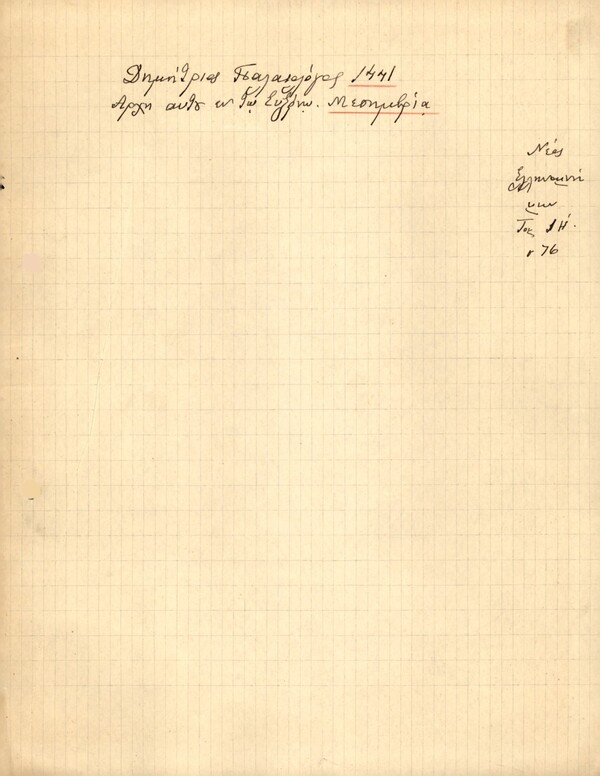 Δημήτριος Παλαιολόγος 1441
Αρχη αυτου εν τῳ Ευξείνῳ. Μεσημβρία
Νέος
Ελληνομνή
μων
Τομ. ΙΗ.
σ 76